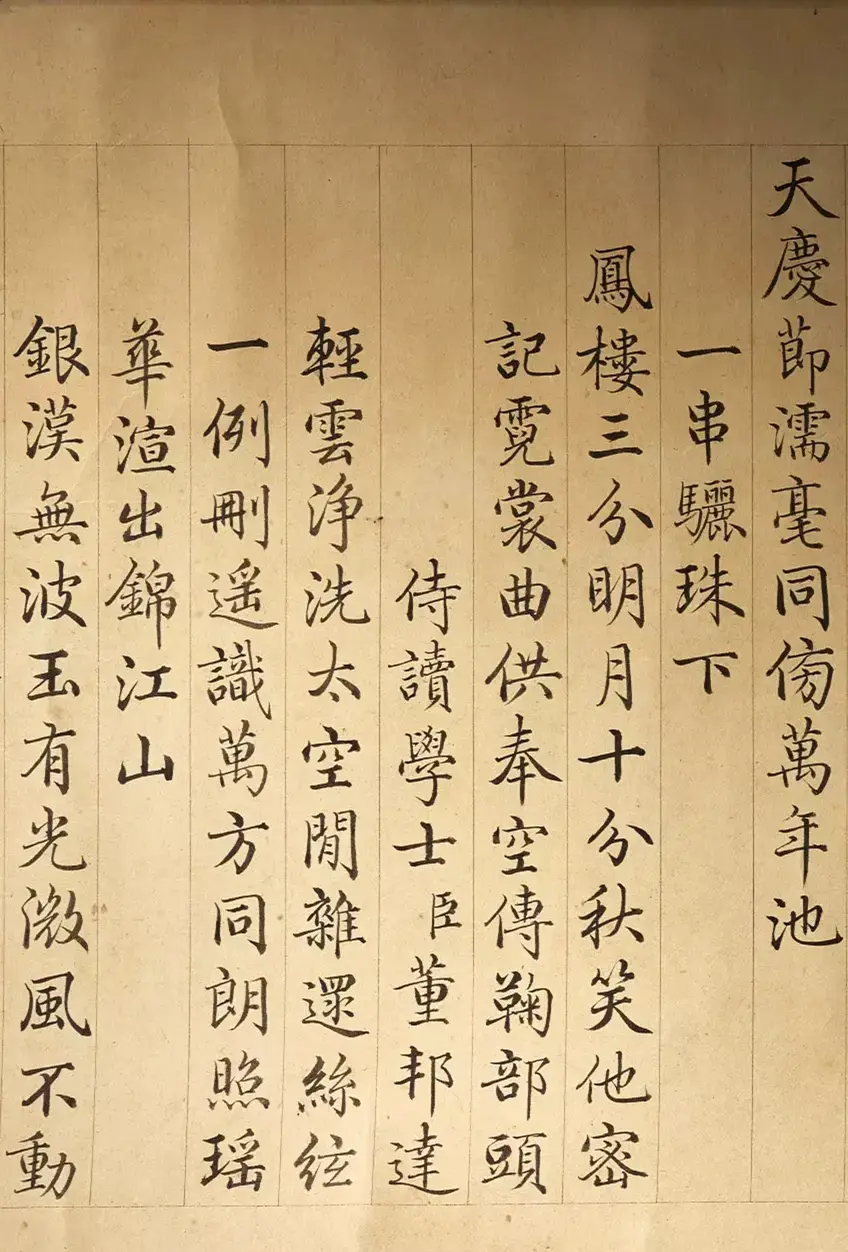 天慶節濡毫同傍萬年池
一串驪珠下
鳳樓三分明月十分秋笑他密
記霓裳曲供奉空傳鞠部頭
侍讀學士臣董邦達
輕雲淨洗太空閒雜遝絲絃
一例刪遥識萬方同朗照瑶
華渲出錦江山
銀漢無波玉有光微風不動